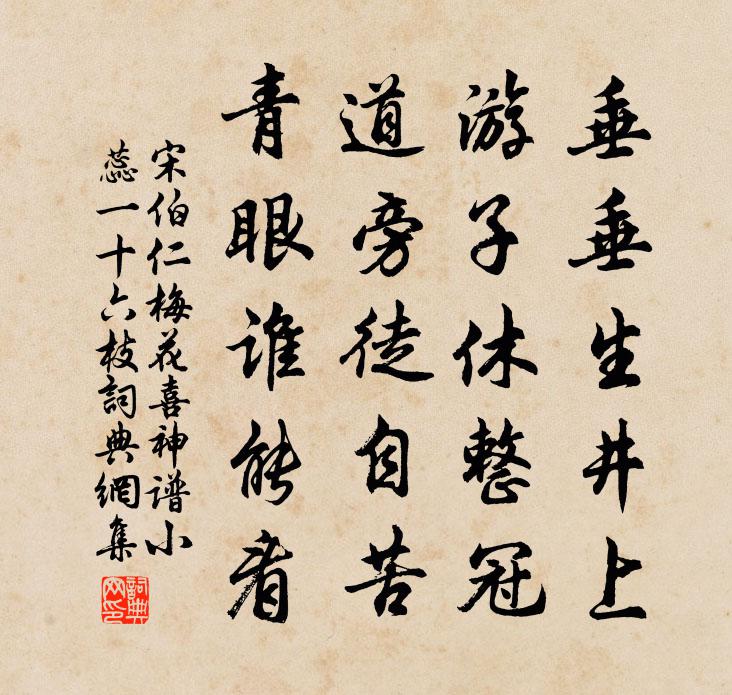 垂垂生井上
游子休整冠
道旁徒自苦
青眼谁能看
宋伯仁梅花喜神谱小
蕊一十六枝詞典網集
詞典网印